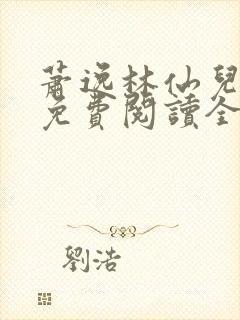 蕭逸林仙兒
免費閱讀全
劉浩